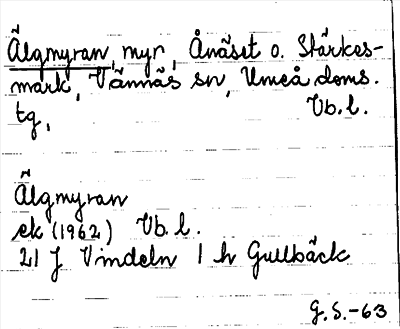 Älgmyran, myr, Ånäset o. Stärkes-
mark, Vännäs sn, Umeå doms.
tg, Vb.l.
Älgmyran
ek (1962) Vb.l.
21 J Vindeln 1 h Gullbäck
G.S.-63